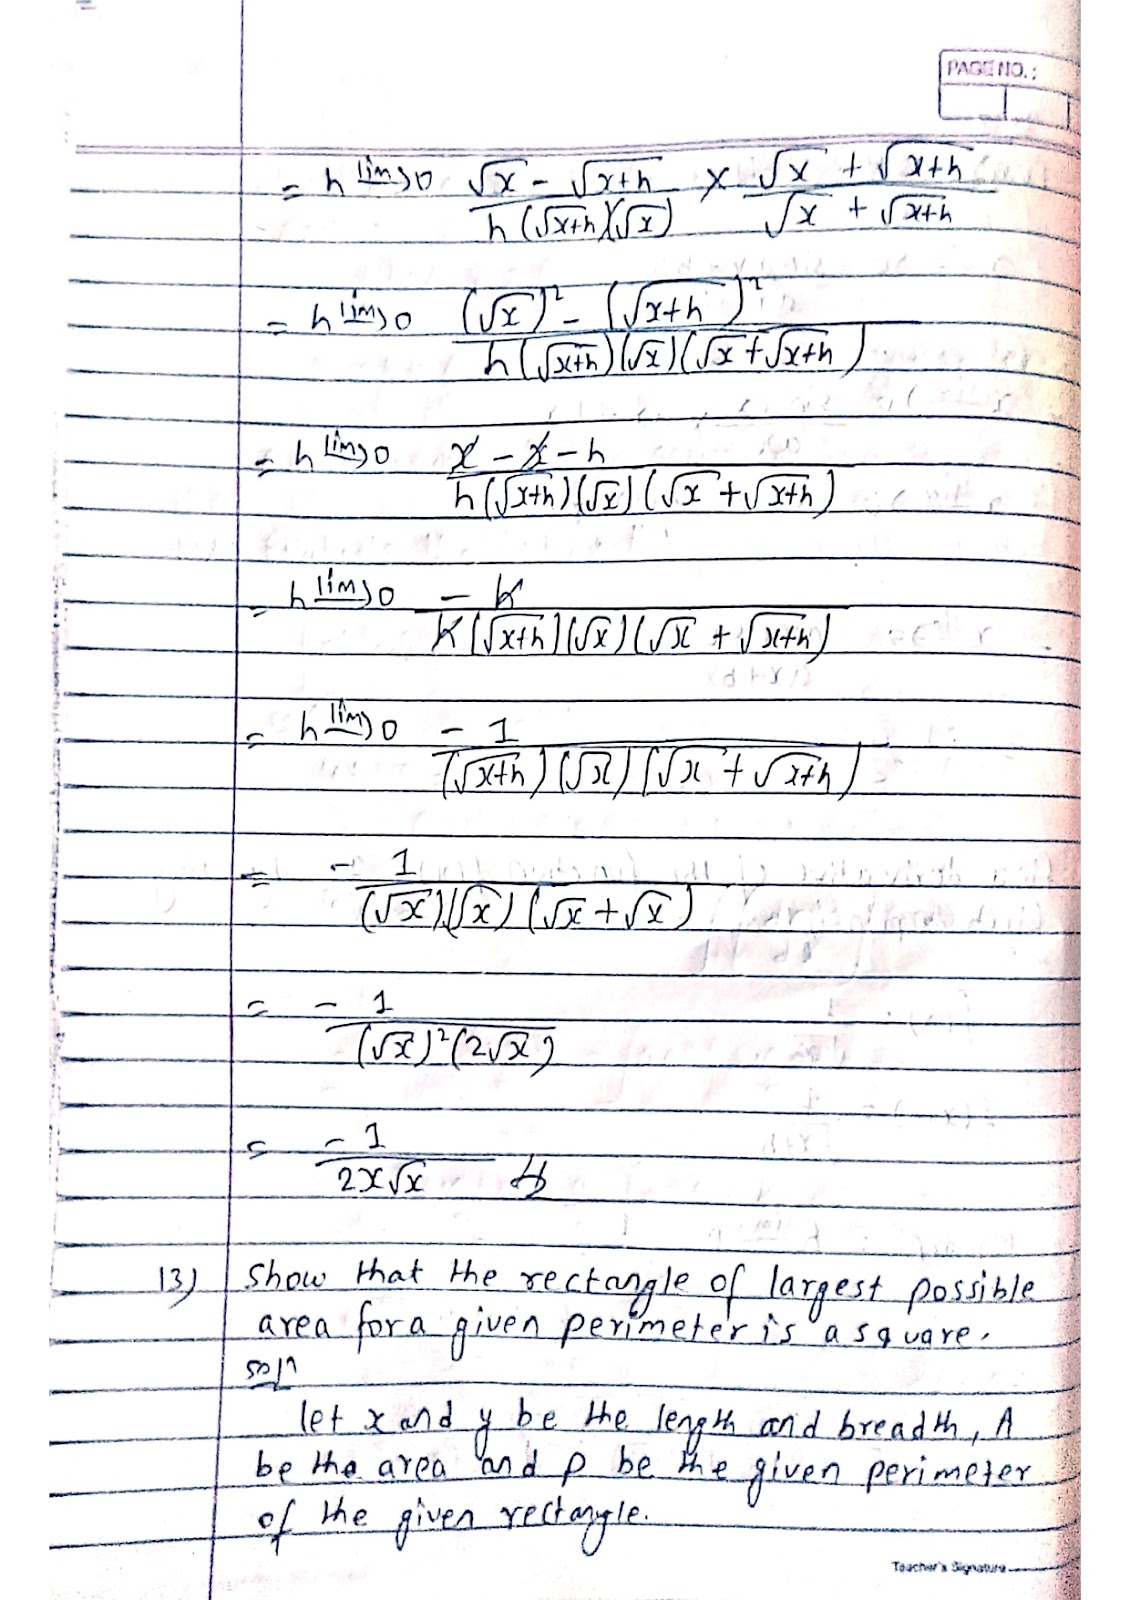 PAGE NO.:
= h lim→0 √x - √x+h / h(√x+h)(√x) × √x + √x+h / √x + √x+h
= h lim→0 (√x)² - (√x+h)² / h(√x+h)(√x)(√x+√x+h)
= h lim→0 x - x - h / h(√x+h)(√x)(√x+√x+h)
= h lim→0 - h / h(√x+h)(√x)(√x + √x+h)
= h lim→0 - 1 / (√x+h)(√x)(√x + √x+h)
= - 1 / (√x)(√x)(√x+√x)
= - 1 / (√x)²(2√x)
= - 1 / 2x√x
13) Show that the rectangle of largest possible
area for a given perimeter is a square.
solⁿ
let x and y be the length and breadth, A
be the area and p be the given perimeter
of the given rectangle.
Teacher's Signature